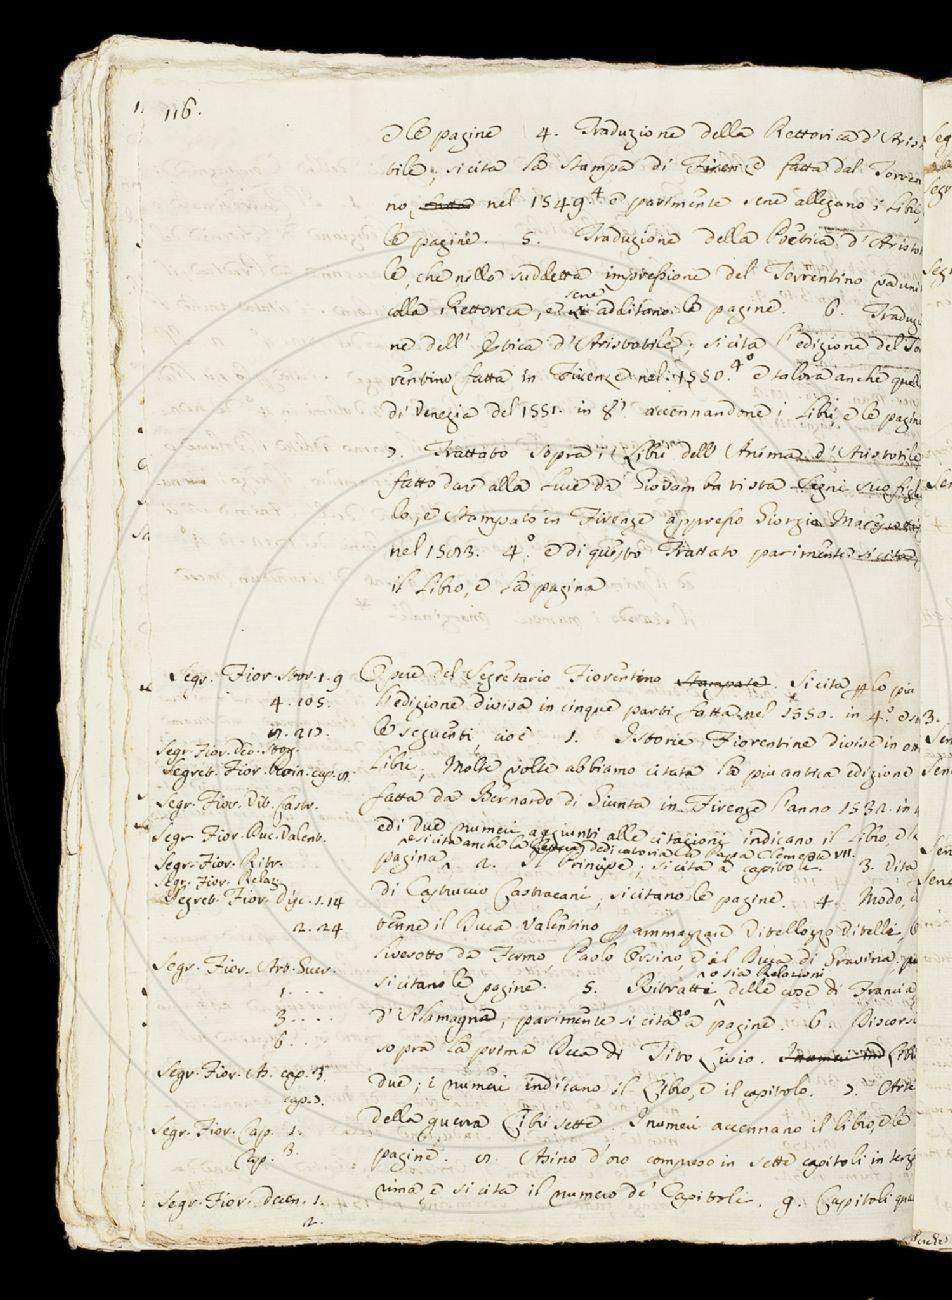 116.
e le pagine 4. Traduzione della Rettorica d'Aris
tile, si cita la Stampa di Firenze fatta dal Torren
no fatta nel 1549. 4.º e parimente se ne allegano i Libri,
le pagine. 5. Traduzione della Poetica d'Aristo
le, che nella suddetta impressione del Torrentino va uni
colla Rettorica, e se ne additano le pagine. 6. Traduz
ne dell' Etica d'Aristotile; si cita l'edizione del To
rentino fatta in Firenze nel 1550. 4º e talora anche quell
di Venezia del 1551. in 8º accennandone i Libri, e le pagine
7. Trattato sopra i Libri dell' Anima d'Aristotile
fatto dare alla Luce da Giovambatista Segni suo figl
lo, e Stampato in Firenze appresso Giorgio Marescotti
nel 1583. 4º. e di questo Trattato parimente si cita
il Libro, e la pagina
Segr. Fior. Stor. 1. 9
4. 105.
8. 217.
Segr. Fior. Dec. Stor.
Segret. Fior. Princ. cap. 8.
Segr. Fior. Vit. Castr.
Segr. Fior. Duc. Valent.
Segr. Fior. Ritr.
Segr. Fior. Relaz.
Segret. Fior. disc. 1. 14
2. 24
Segr. Fior. Art. Guer.
1. . . .
3. . . .
6. . .
Segr. Fior. As. cap. 3.
cap. 7.
Segr. Fior. Cap. 1.
Cap. 3.
Segr. Fior. decen. 1.
2.
Opere del Segretario Fiorentino Stampate. Si cita p lo più
l'edizione divisa in cinque parti fatta nel 1550. in 4.º e son
le seguenti, cioè 1. Istorie Fiorentine divise in ott
Libri; Molte volte abbiamo citata la più antica edizione
fatta da Bernardo di Giunta in Firenze l'anno 1532. in
e di due numeri aggiunti alle citazioni indicano il Libro, e la
e si cita anche la dedicatoria a Papa Clemente VII.
pagina 2. Il Principe; si cita a capitoli. 3. Vita
di Castruccio Castracani, si citano le pagine. 4. Modo, c
tenne il Duca Valentino p ammazzare Vitellozzo Vitelli, O
liverotto da Fermo, Paolo Orsino, e il Duca di Gravina, pa
si citano le pagine. 5. Ritratti o sia Relazioni delle cose di Francia,
d'Alamagna; parimente si citano a pagine. 6. Discorsi
sopra la prima Deca di Tito Livio. I numeri ind Libri
due; i numeri indicano il Libro, e il capitolo. 7. Arte
della guerra Libri sette. I numeri accennano il libro, e le
pagine. 8. Asino d'oro compreso in sette capitoli in terz
rima, e si cita il numero de' Capitoli. 9. Capitoli qua